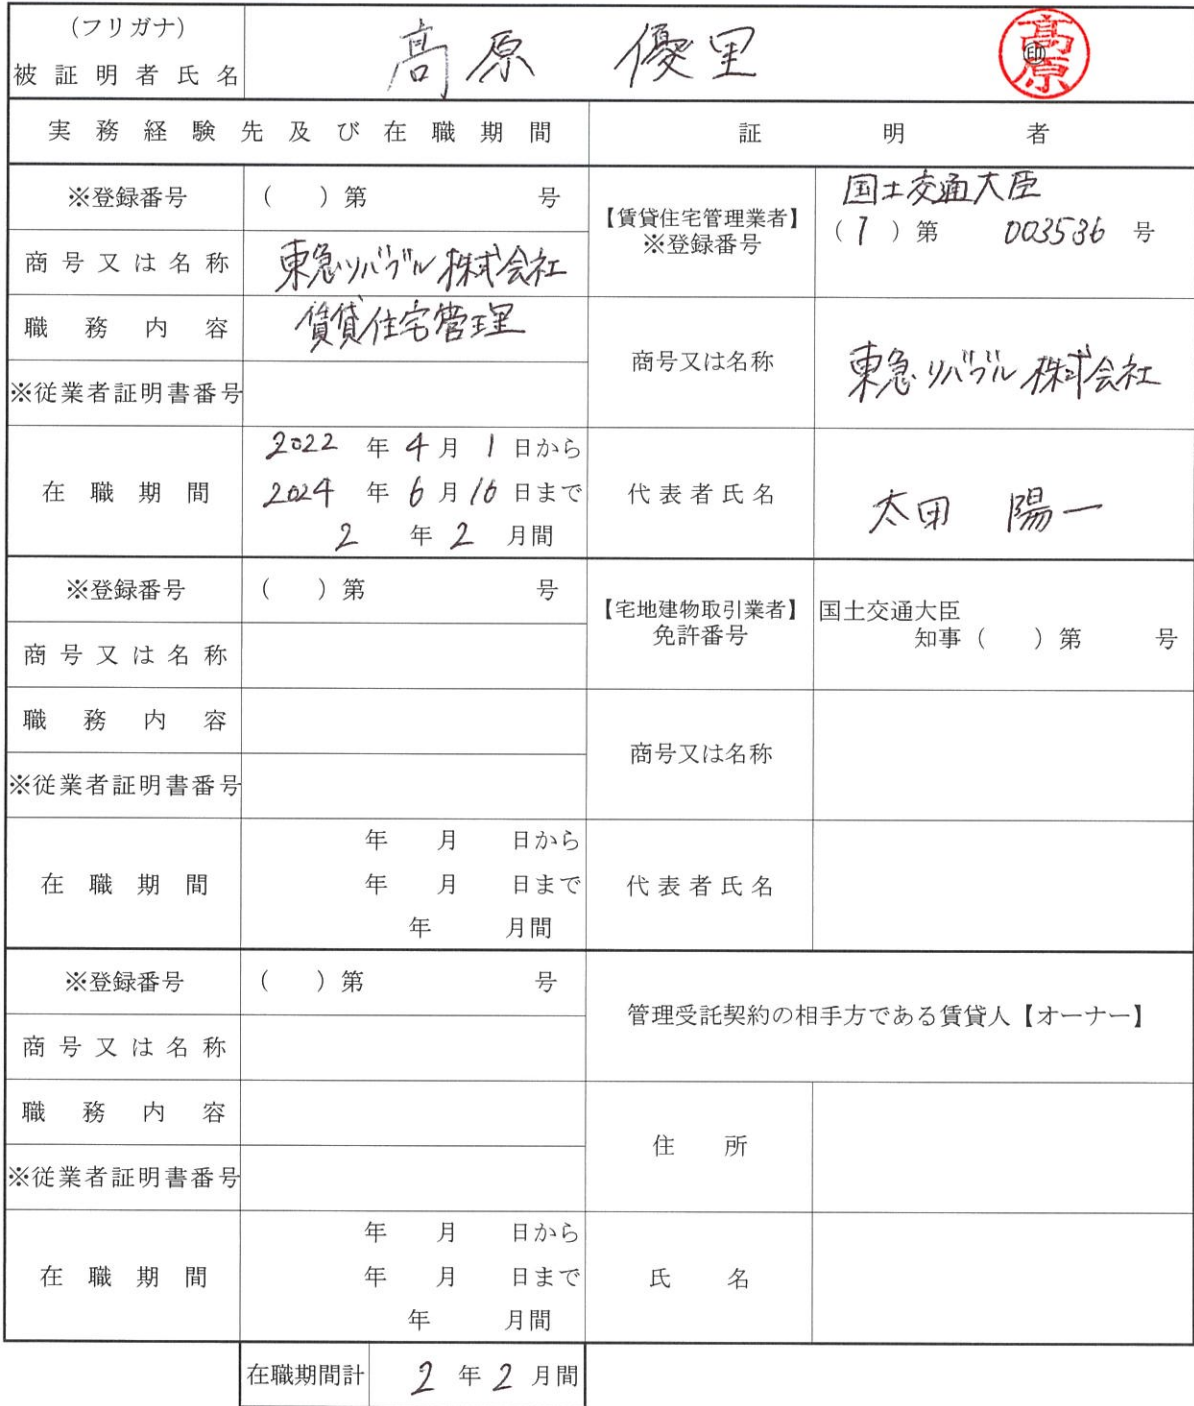 (フリガナ)
被証明者氏名 髙原 優里 髙原 ㊞
実務経験先及び在職期間 証明者
※登録番号 ( )第 号
商号又は名称 東急リバブル株式会社
職務内容 賃貸住宅管理
※従業者証明書番号
在職期間
2022 年 4 月 1 日から
2024 年 6 月 16 日まで
2 年 2 月間
【賃貸住宅管理業者】
※登録番号
国土交通大臣
(1)第 003536 号
商号又は名称 東急リバブル株式会社
代表者氏名 太田 陽一
※登録番号 ( )第 号
商号又は名称
職務内容
※従業者証明書番号
在職期間
年 月 日から
年 月 日まで
年 月間
【宅地建物取引業者】
免許番号
国土交通大臣
知事( )第 号
商号又は名称
代表者氏名
※登録番号 ( )第 号
商号又は名称
職務内容
※従業者証明書番号
在職期間
年 月 日から
年 月 日まで
年 月間
管理受託契約の相手方である賃貸人【オーナー】
住所
氏名
在職期間計 2 年 2 月間